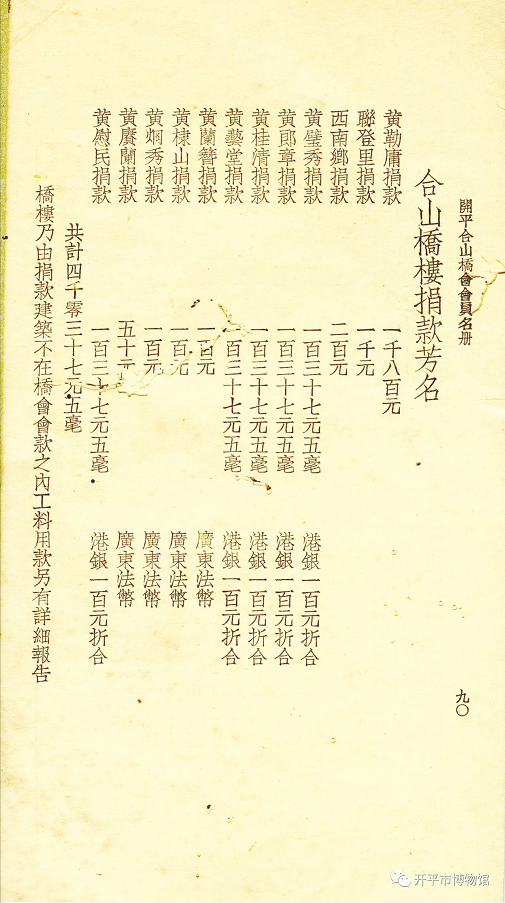 開平合山橋會會員名册
九〇
合山橋樓捐款芳名
黃勒庸捐款 一千八百元
聯登里捐款 一千元
西南鄉捐款 二百元
黃璧秀捐款 一百三十七元五毫 港銀一百元折合
黃郎章捐款 一百三十七元五毫 港銀一百元折合
黃桂清捐款 一百三十七元五毫 港銀一百元折合
黃藝堂捐款 一百三十七元五毫 港銀一百元折合
黃蘭簪捐款 一百元 廣東法幣
黃棣山捐款 一百元 廣東法幣
黃炯秀捐款 一百元 廣東法幣
黃賡蘭捐款 五十元 廣東法幣
黃慰民捐款 一百三十七元五毫 港銀一百元折合
共計四千零三十七元五毫
橋樓乃由捐款建築不在橋會會款之內工料用款另有詳細報告
开平市博物馆